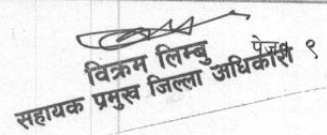 विक्रम लिम्बु
सहायक प्रमुख जिल्ला अधिकारी
पेज ९